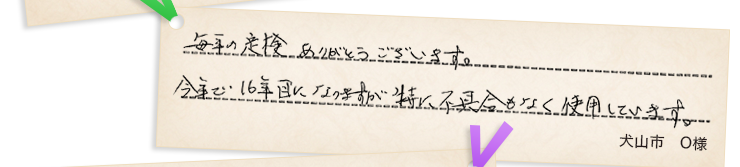 毎年の定検 ありがとうございます。
今年で、16年目になりますが 特に不具合もなく使用しています。
犬山市 O様